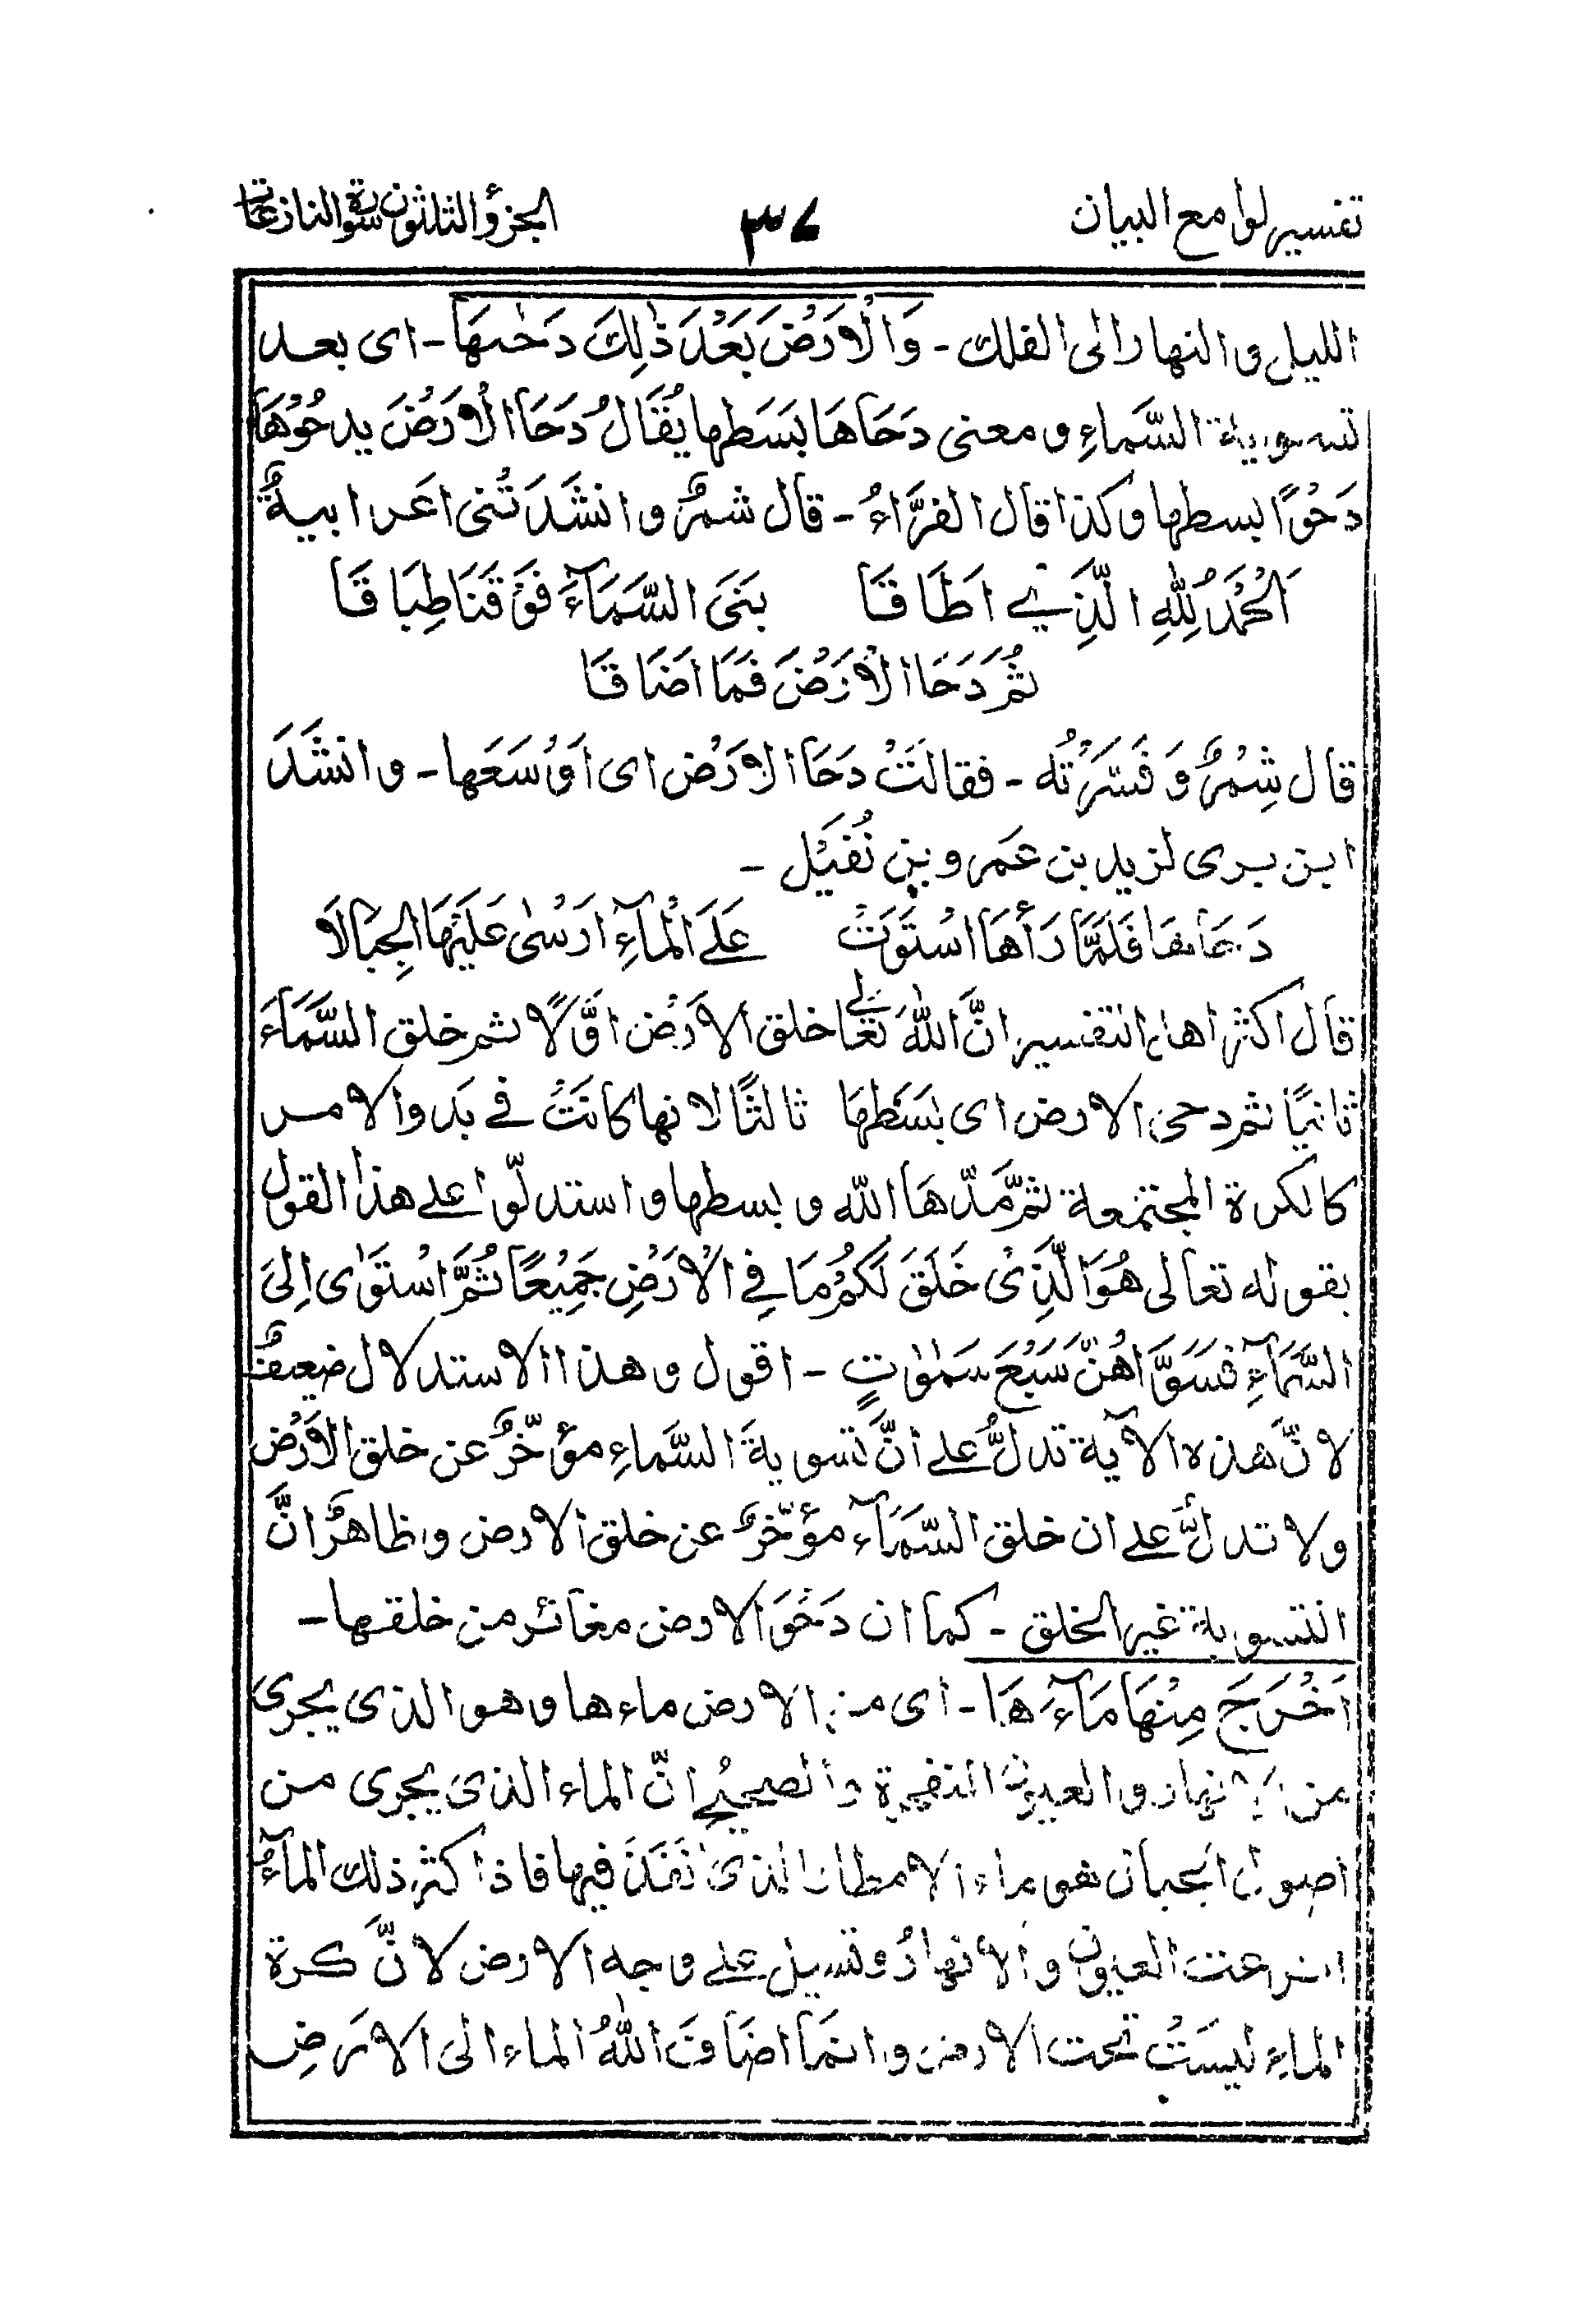 تفسیر لوامع البیان
٣٧
الجزؤ الثلثون سورة النازعات
اللیل والنھار الی الفلك - وَالْاَرْضَ بَعْدَ ذٰلِكَ دَحٰىهَا - ای بعد
تسویة السَّماءِ و معنی دَحَاهَا بَسَطها یُقَالُ دَحَا الْاَرْضَ یدحُوْهَا
دَحْوًا بسطها وکذا قال الفرَّاءُ - قال شمرٌ و انشَدَتْنی اعرابیةٌ
اَلْحَمْدُ لِلّٰهِ الَّذِیْ اَطَاقَا بَنَی السَّمَآءَ فَوْقَنَا طِبَاقَا
ثُمَّ دَحَا الْاَرْضَ فَمَا اَضَاقَا
قال شِمْرٌ وَفَسَّرَتْه - فقالَتْ دَحَا الارْض ای اَوْسَعَها - و انشَدَ
ابن بری لزید بن عَمرو بن نُفَیْل -
دَحَاهَا فَلَمَّا رَأهَا اسْتَوَتْ عَلَی الْمَآءِ اَرْسٰی عَلَیْهَا الْجِبَالَا
قال اکثر اهل التفسیر انَّ اللّٰهَ تَعَالٰی خلق الارْض اوَّلًا ثم خلق السَّمَآءَ
ثانیًا ثم دحی الارض ای بَسَطَهَا ثالثًا لانها کانَتْ فی بَدو الامر
کالکرة المجتمعة ثمَّ مَدَّهَا اللّٰه و بسطها و استدلّوا علی هذا القول
بقوله تعالی هُوَ الَّذِیْ خَلَقَ لَكُمْ مَا فِی الْاَرْضِ جَمِیْعًا ثُمَّ اسْتَوٰی اِلَی
السَّمَآءِ فَسَوَّاهُنَّ سَبْعَ سَمٰوٰتٍ - اقول وهذا الاستدلال ضعیفٌ
لانَّ هٰذه الآیة تدلُّ علی انَّ تسویةَ السَّماءِ مؤخّرٌ عن خلق الاَرْض
ولا تدلُّ علی ان خلق السَّمَآء مؤخّرٌ عن خلق الارض و ظاهرٌ انَّ
التسویة غیر الخلق - کما ان دَحْوَ الارض مغائر من خلقها -
اَخْرَجَ مِنْهَا مَآءَهَا - ای من الارض ماءها وهو الذی یجری
من الانهار والعیون المتفجرة والصحیح انّ الماء الذی یجری من
اصول الجبال هو ماء الامطار الذی نَفَذَ فیها فاذا کثر ذلك المآءُ
العیون والأنهارُ وتسیل علی وجه الارض لانَّ کرة
الماءِ لیسَتْ تحت الارض و انمَا اضَافَ اللّٰهُ الماء الی الارَضِ